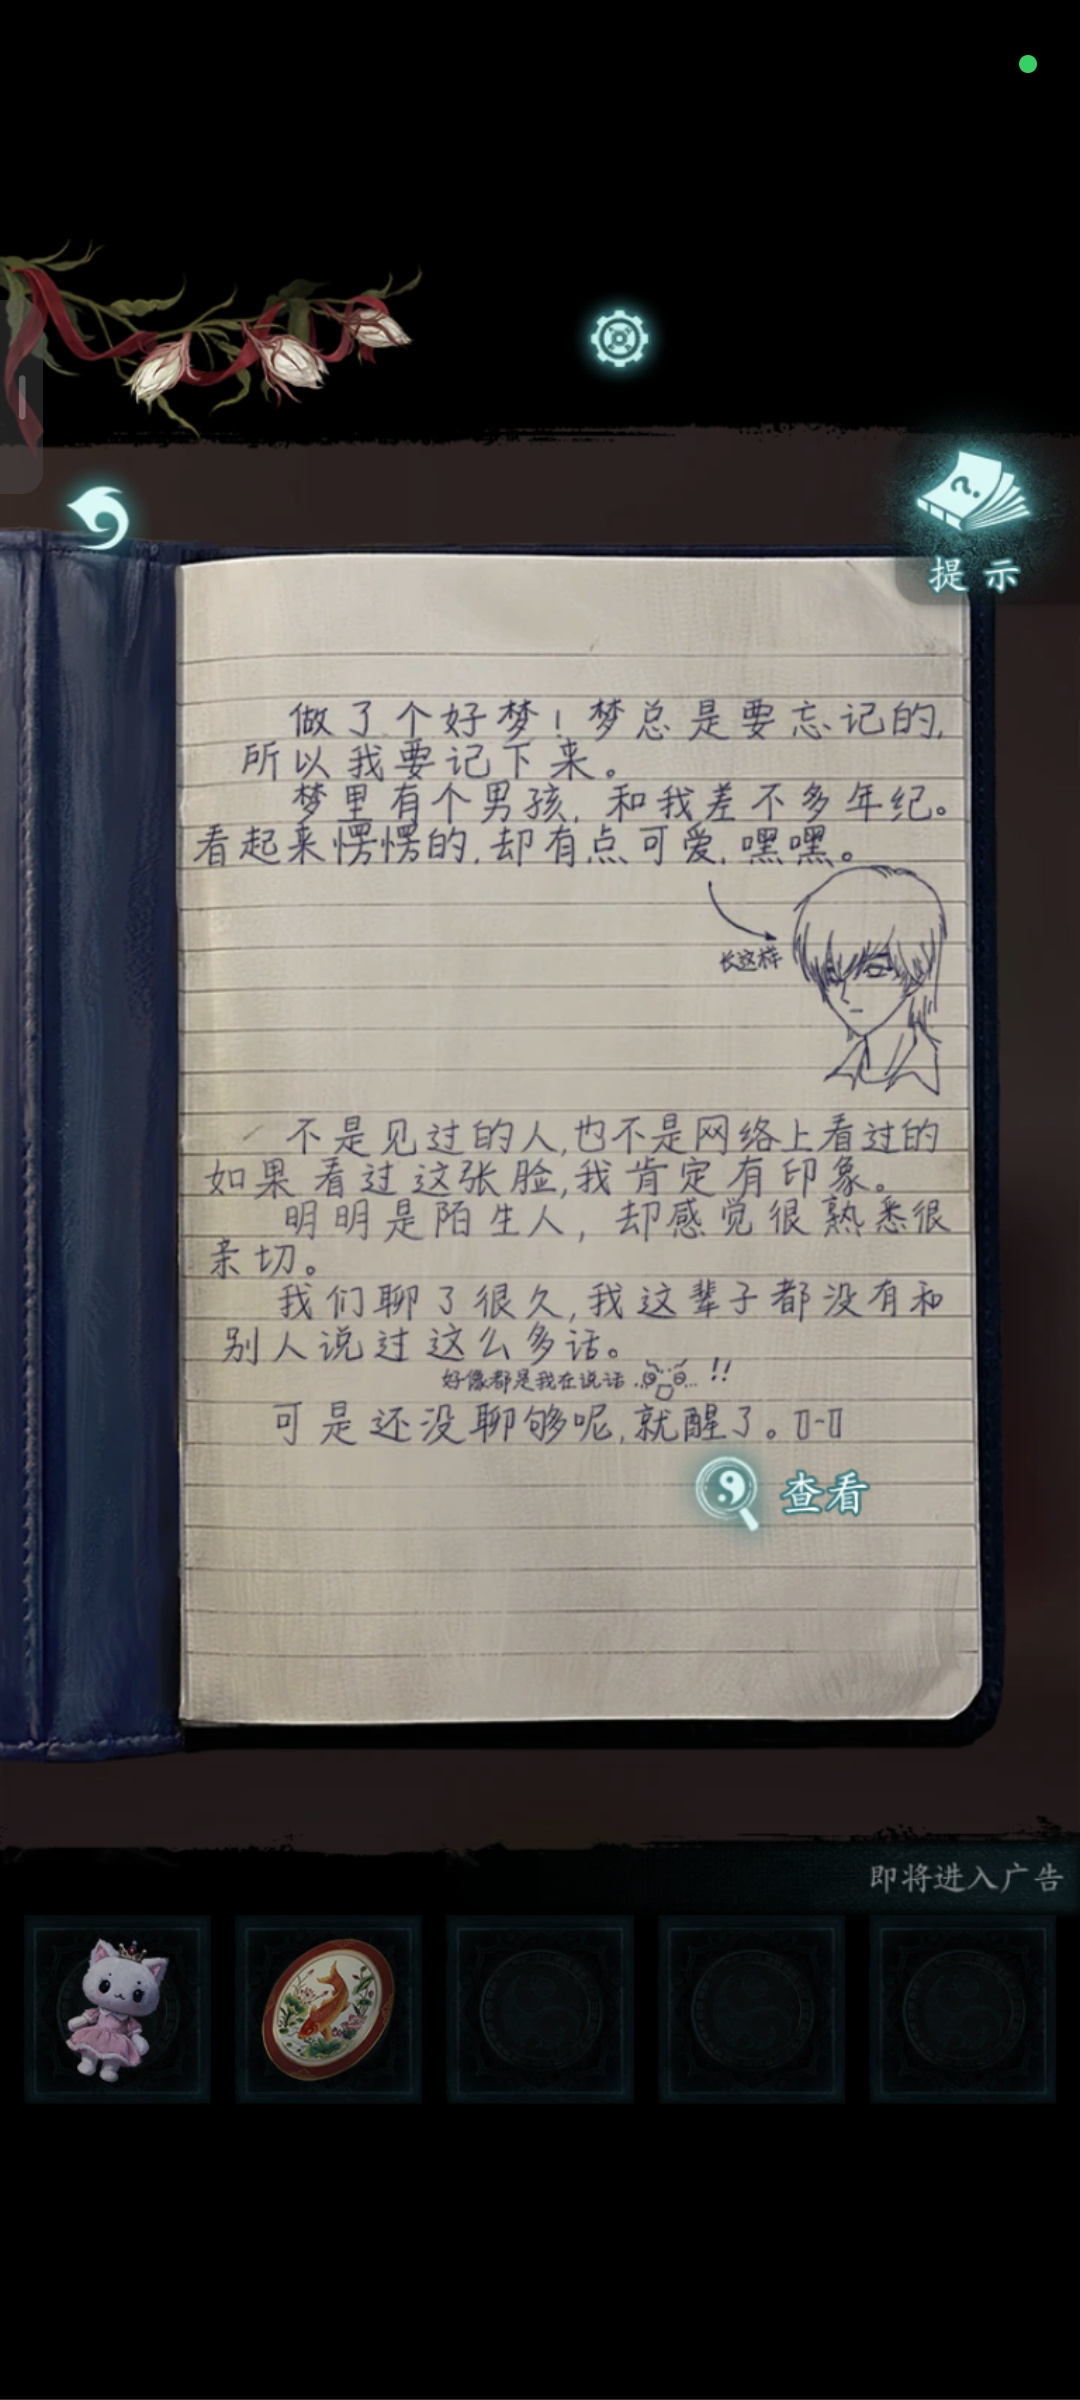 提示
做了个好梦！梦总是要忘记的，
所以我要记下来。
梦里有个男孩，和我差不多年纪。
看起来愣愣的，却有点可爱，嘿嘿。
长这样
不是见过的人，也不是网络上看过的
如果看过这张脸，我肯定有印象。
明明是陌生人，却感觉很熟悉很
亲切。
我们聊了很久，我这辈子都没有和
别人说过这么多话。
好像都是我在说话...!!
可是还没聊够呢，就醒了。
查看
即将进入广告